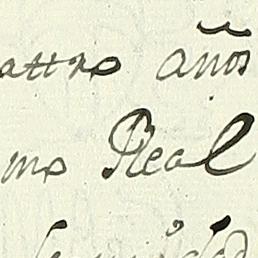 attro años
mo Real